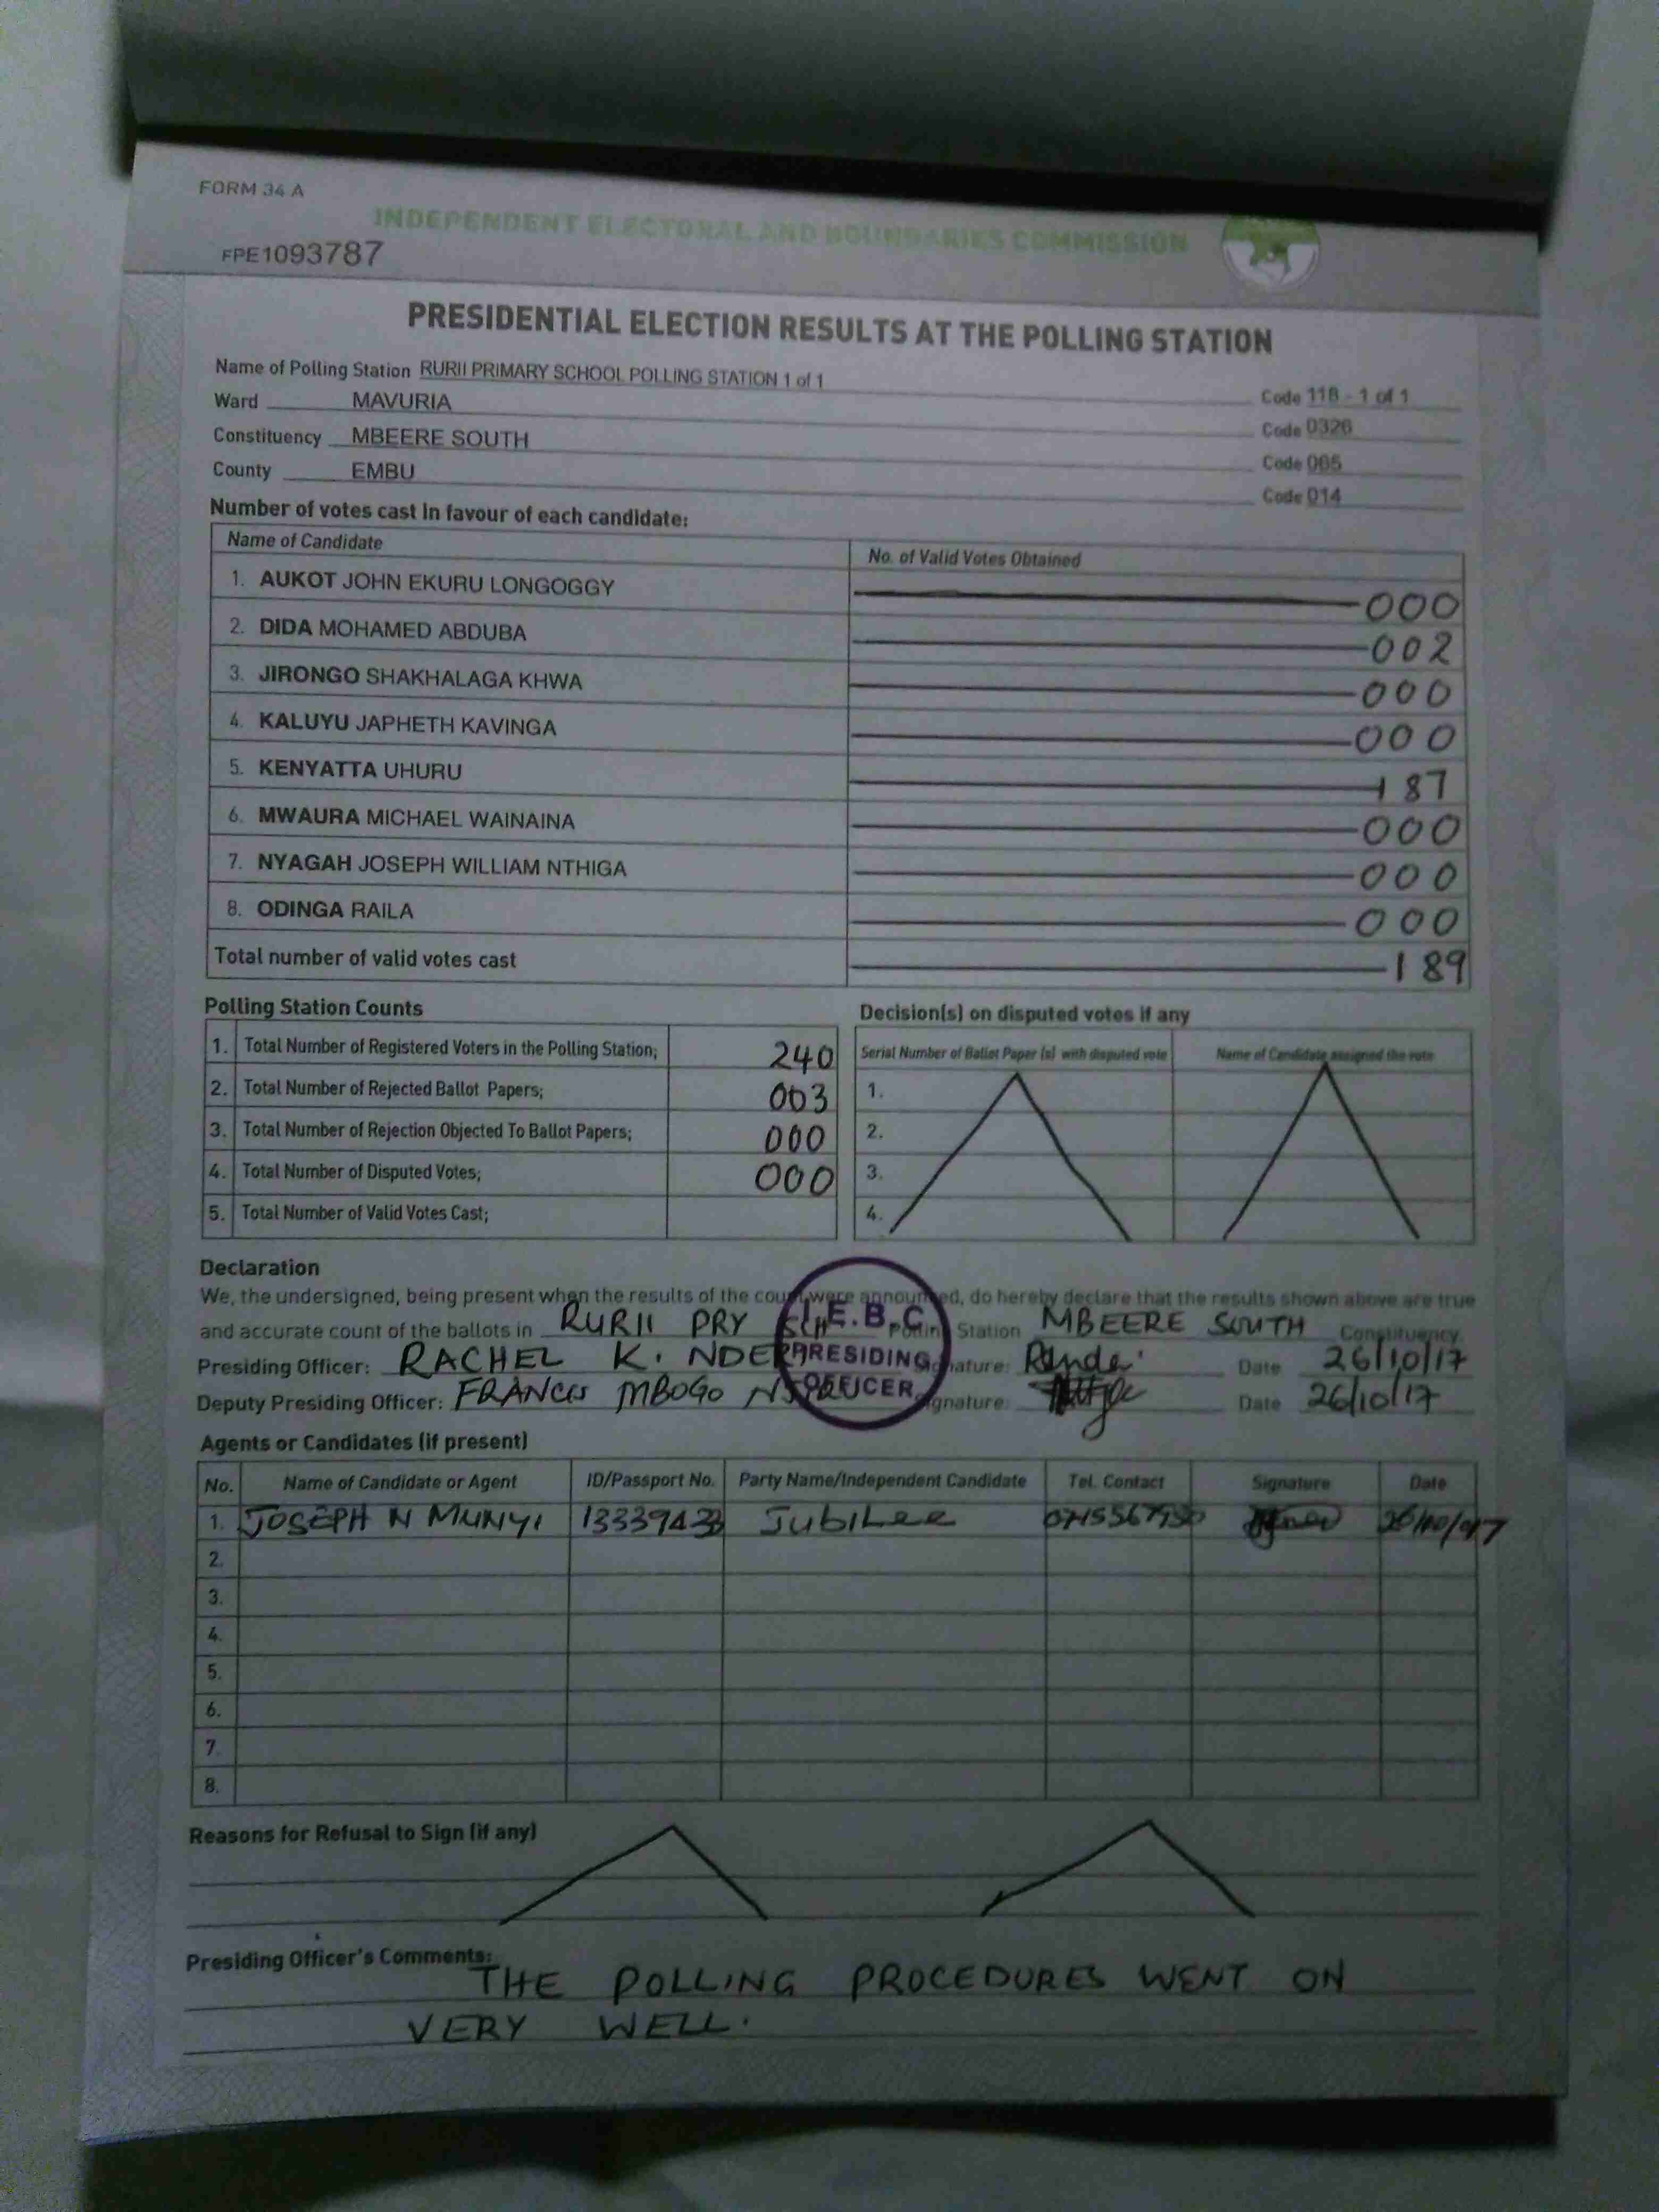 FORM 34 A
INDEPENDENT ELECTORAL AND BOUNDARIES COMMISSION
FPE1093787
PRESIDENTIAL ELECTION RESULTS AT THE POLLING STATION
Name of Polling Station RURII PRIMARY SCHOOL POLLING STATION 1 of 1 Code 118 - 1 of 1
Ward MAVURIA Code 0326
Constituency MBEERE SOUTH Code 065
County EMBU Code 014
Number of votes cast in favour of each candidate:
Name of Candidate No. of Valid Votes Obtained
1. AUKOT JOHN EKURU LONGOGGY 000
2. DIDA MOHAMED ABDUBA 002
3. JIRONGO SHAKHALAGA KHWA 000
4. KALUYU JAPHETH KAVINGA 000
5. KENYATTA UHURU 187
6. MWAURA MICHAEL WAINAINA 000
7. NYAGAH JOSEPH WILLIAM NTHIGA 000
8. ODINGA RAILA 000
Total number of valid votes cast 189
Polling Station Counts
1. Total Number of Registered Voters in the Polling Station; 240
2. Total Number of Rejected Ballot Papers; 003
3. Total Number of Rejection Objected To Ballot Papers; 000
4. Total Number of Disputed Votes; 000
5. Total Number of Valid Votes Cast;
Decision(s) on disputed votes if any
Serial Number of Ballot Paper (s) with disputed vote Name of Candidate assigned the vote
1.
2.
3.
4.
Declaration
We, the undersigned, being present when the results of the count were announced, do hereby declare that the results shown above are true
and accurate count of the ballots in RURII PRY SCH Polling Station MBEERE SOUTH Constituency
Presiding Officer: RACHEL K. Signature: Date 26/10/17
Deputy Presiding Officer: FRANCIS MBOGO Signature: Date 26/10/17
I.E.B.C
PRESIDING
OFFICER
Agents or Candidates (if present)
No. Name of Candidate or Agent ID/Passport No. Party Name/Independent Candidate Tel. Contact Signature Date
1. JOSEPH N MUNYI JubiLee
2.
3.
4.
5.
6.
7.
8.
Reasons for Refusal to Sign (if any)
Presiding Officer's Comments:
THE POLLING PROCEDURES WENT ON
VERY WELL.